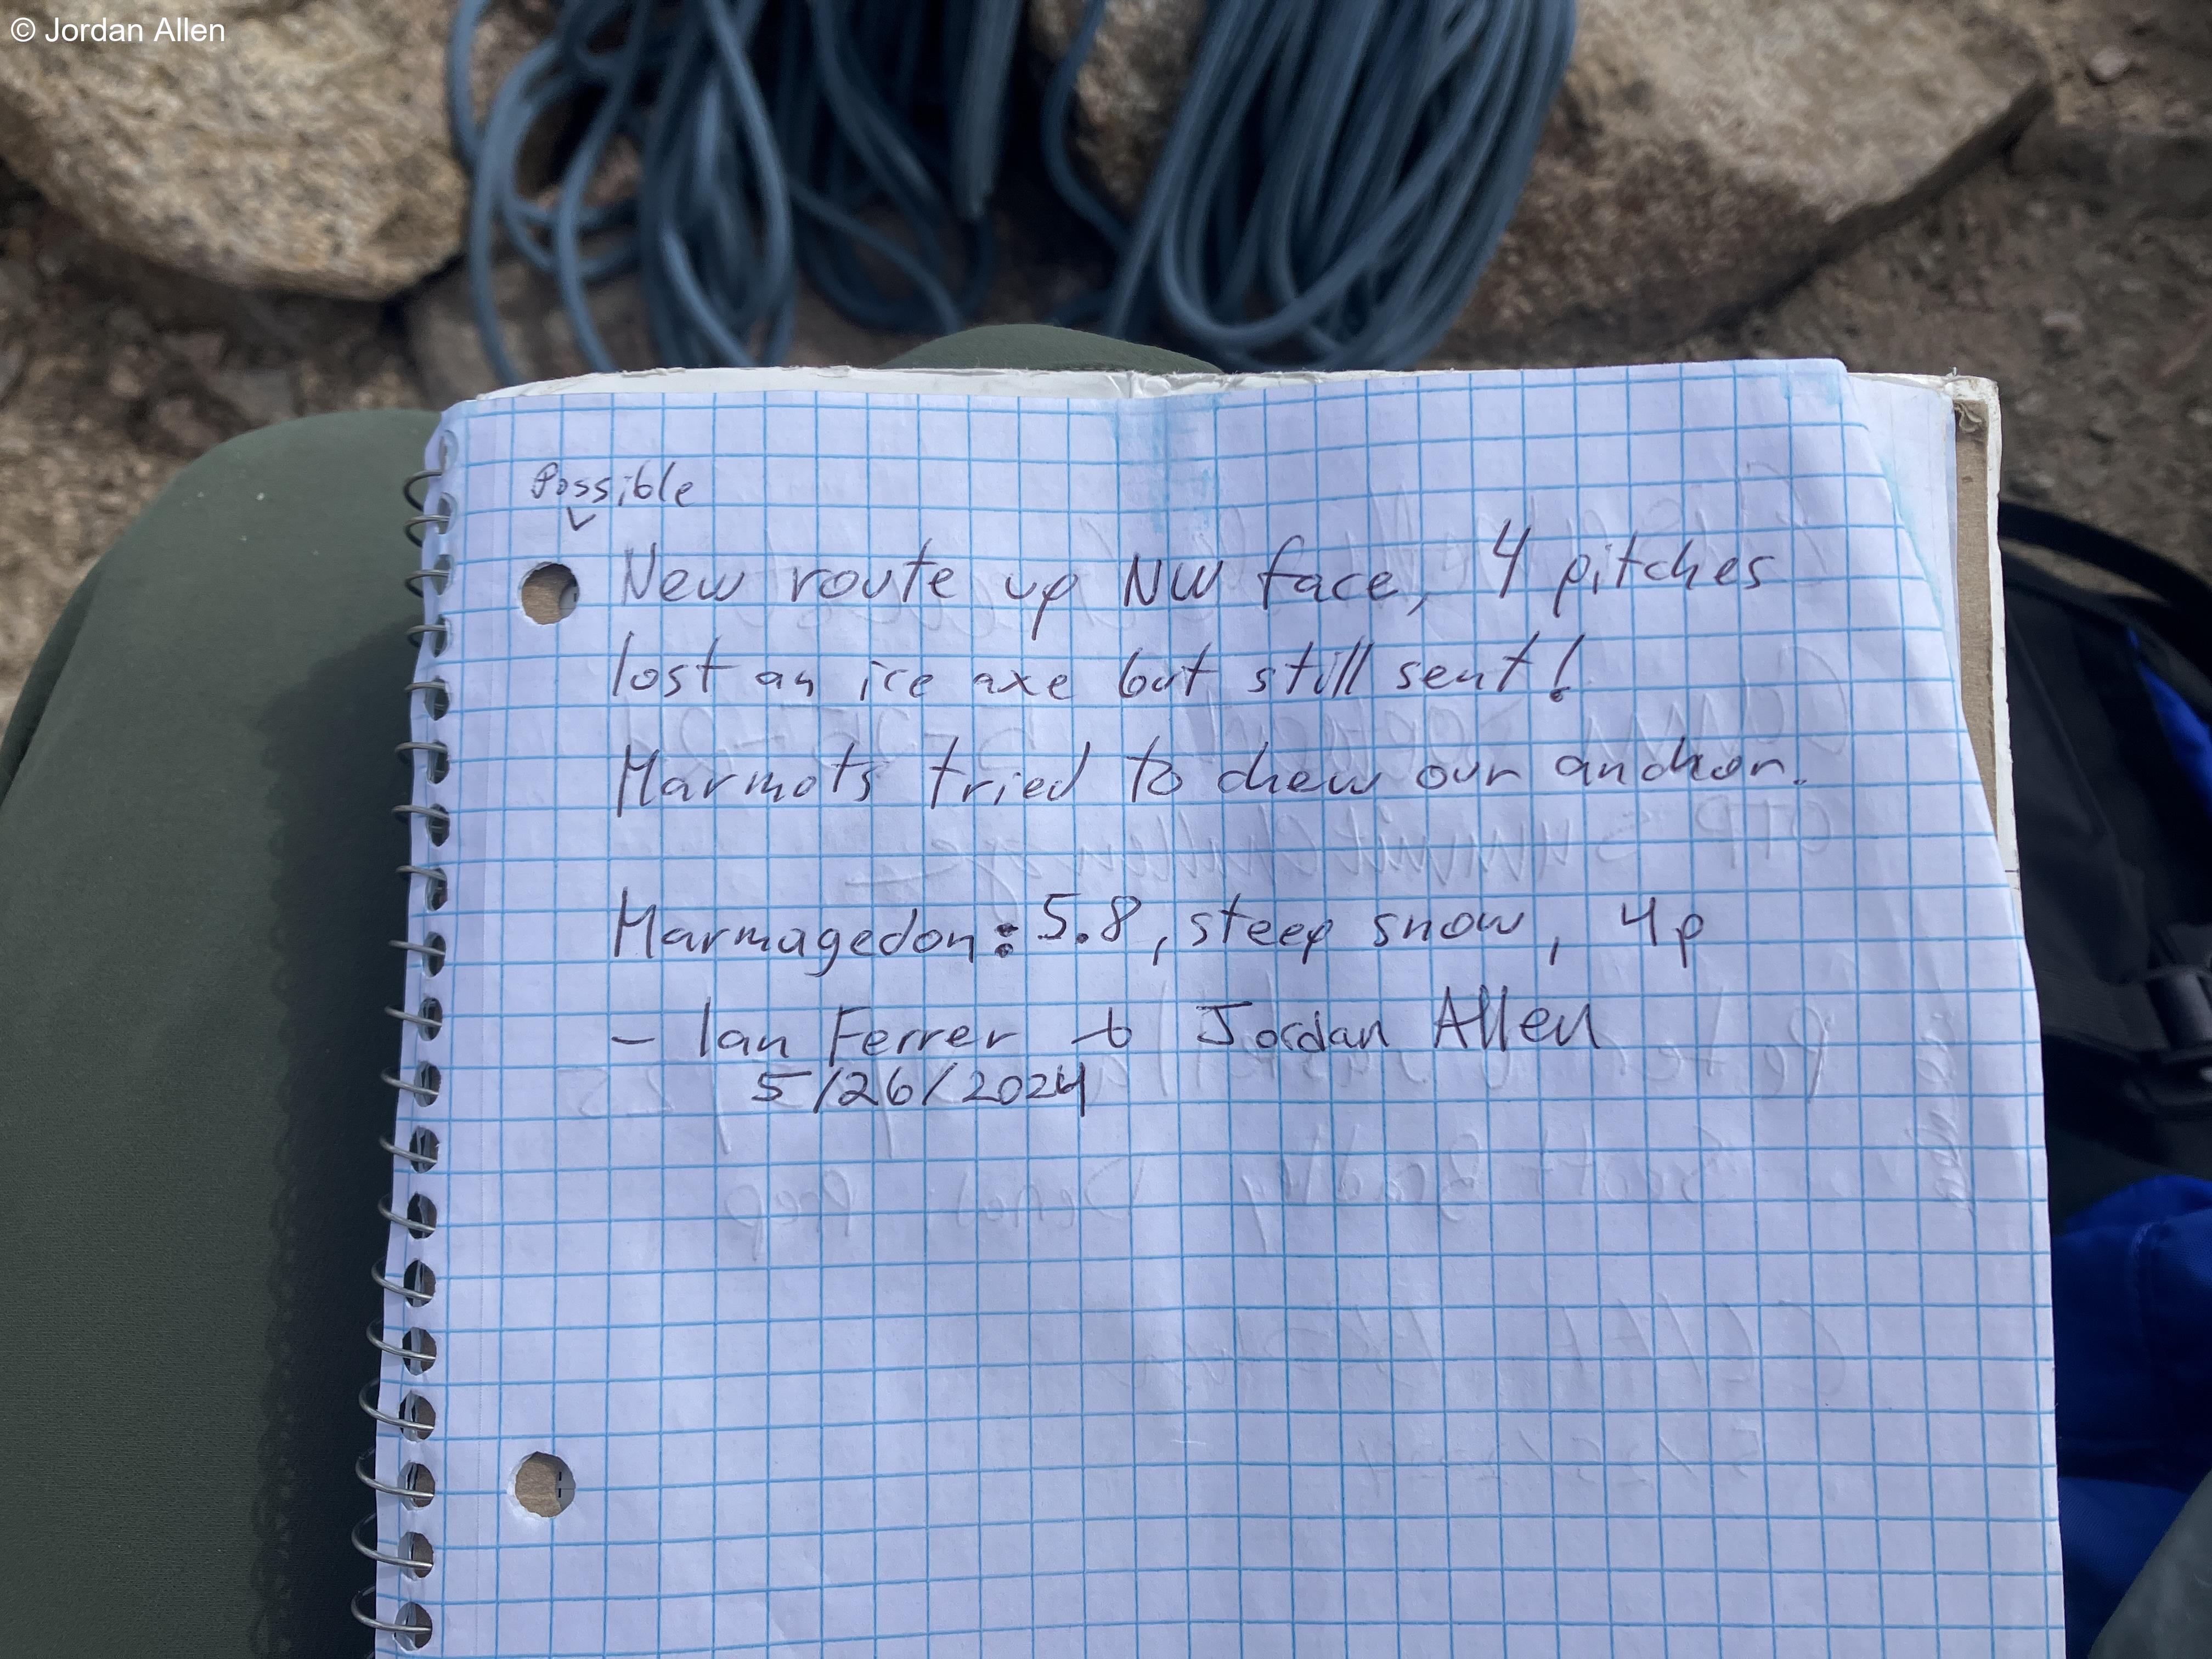 © Jordan Allen
Possible
New route up NW face, 4 pitches
lost an ice axe but still sent!
Marmots tried to chew our anchor.
Marmagedon: 5.8, steep snow, 4p
- Ian Ferrer & Jordan Allen
5/26/2024